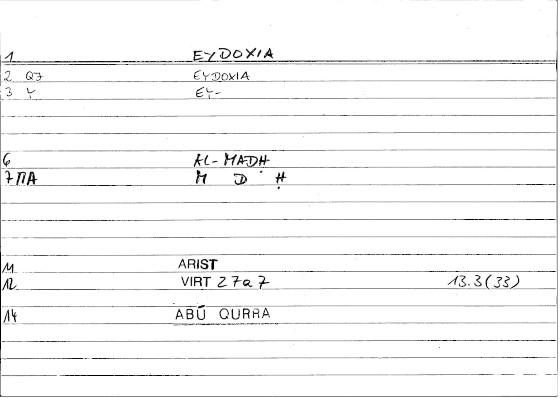 1 EYDOXIA
2 Q7 EYDOXIA
3 Y EY-
6 AL-MADḤ
7 ΠA M D Ḥ
11 ARIST
12 VIRT 27a7 13.3(33)
14 ABŪ QURRA